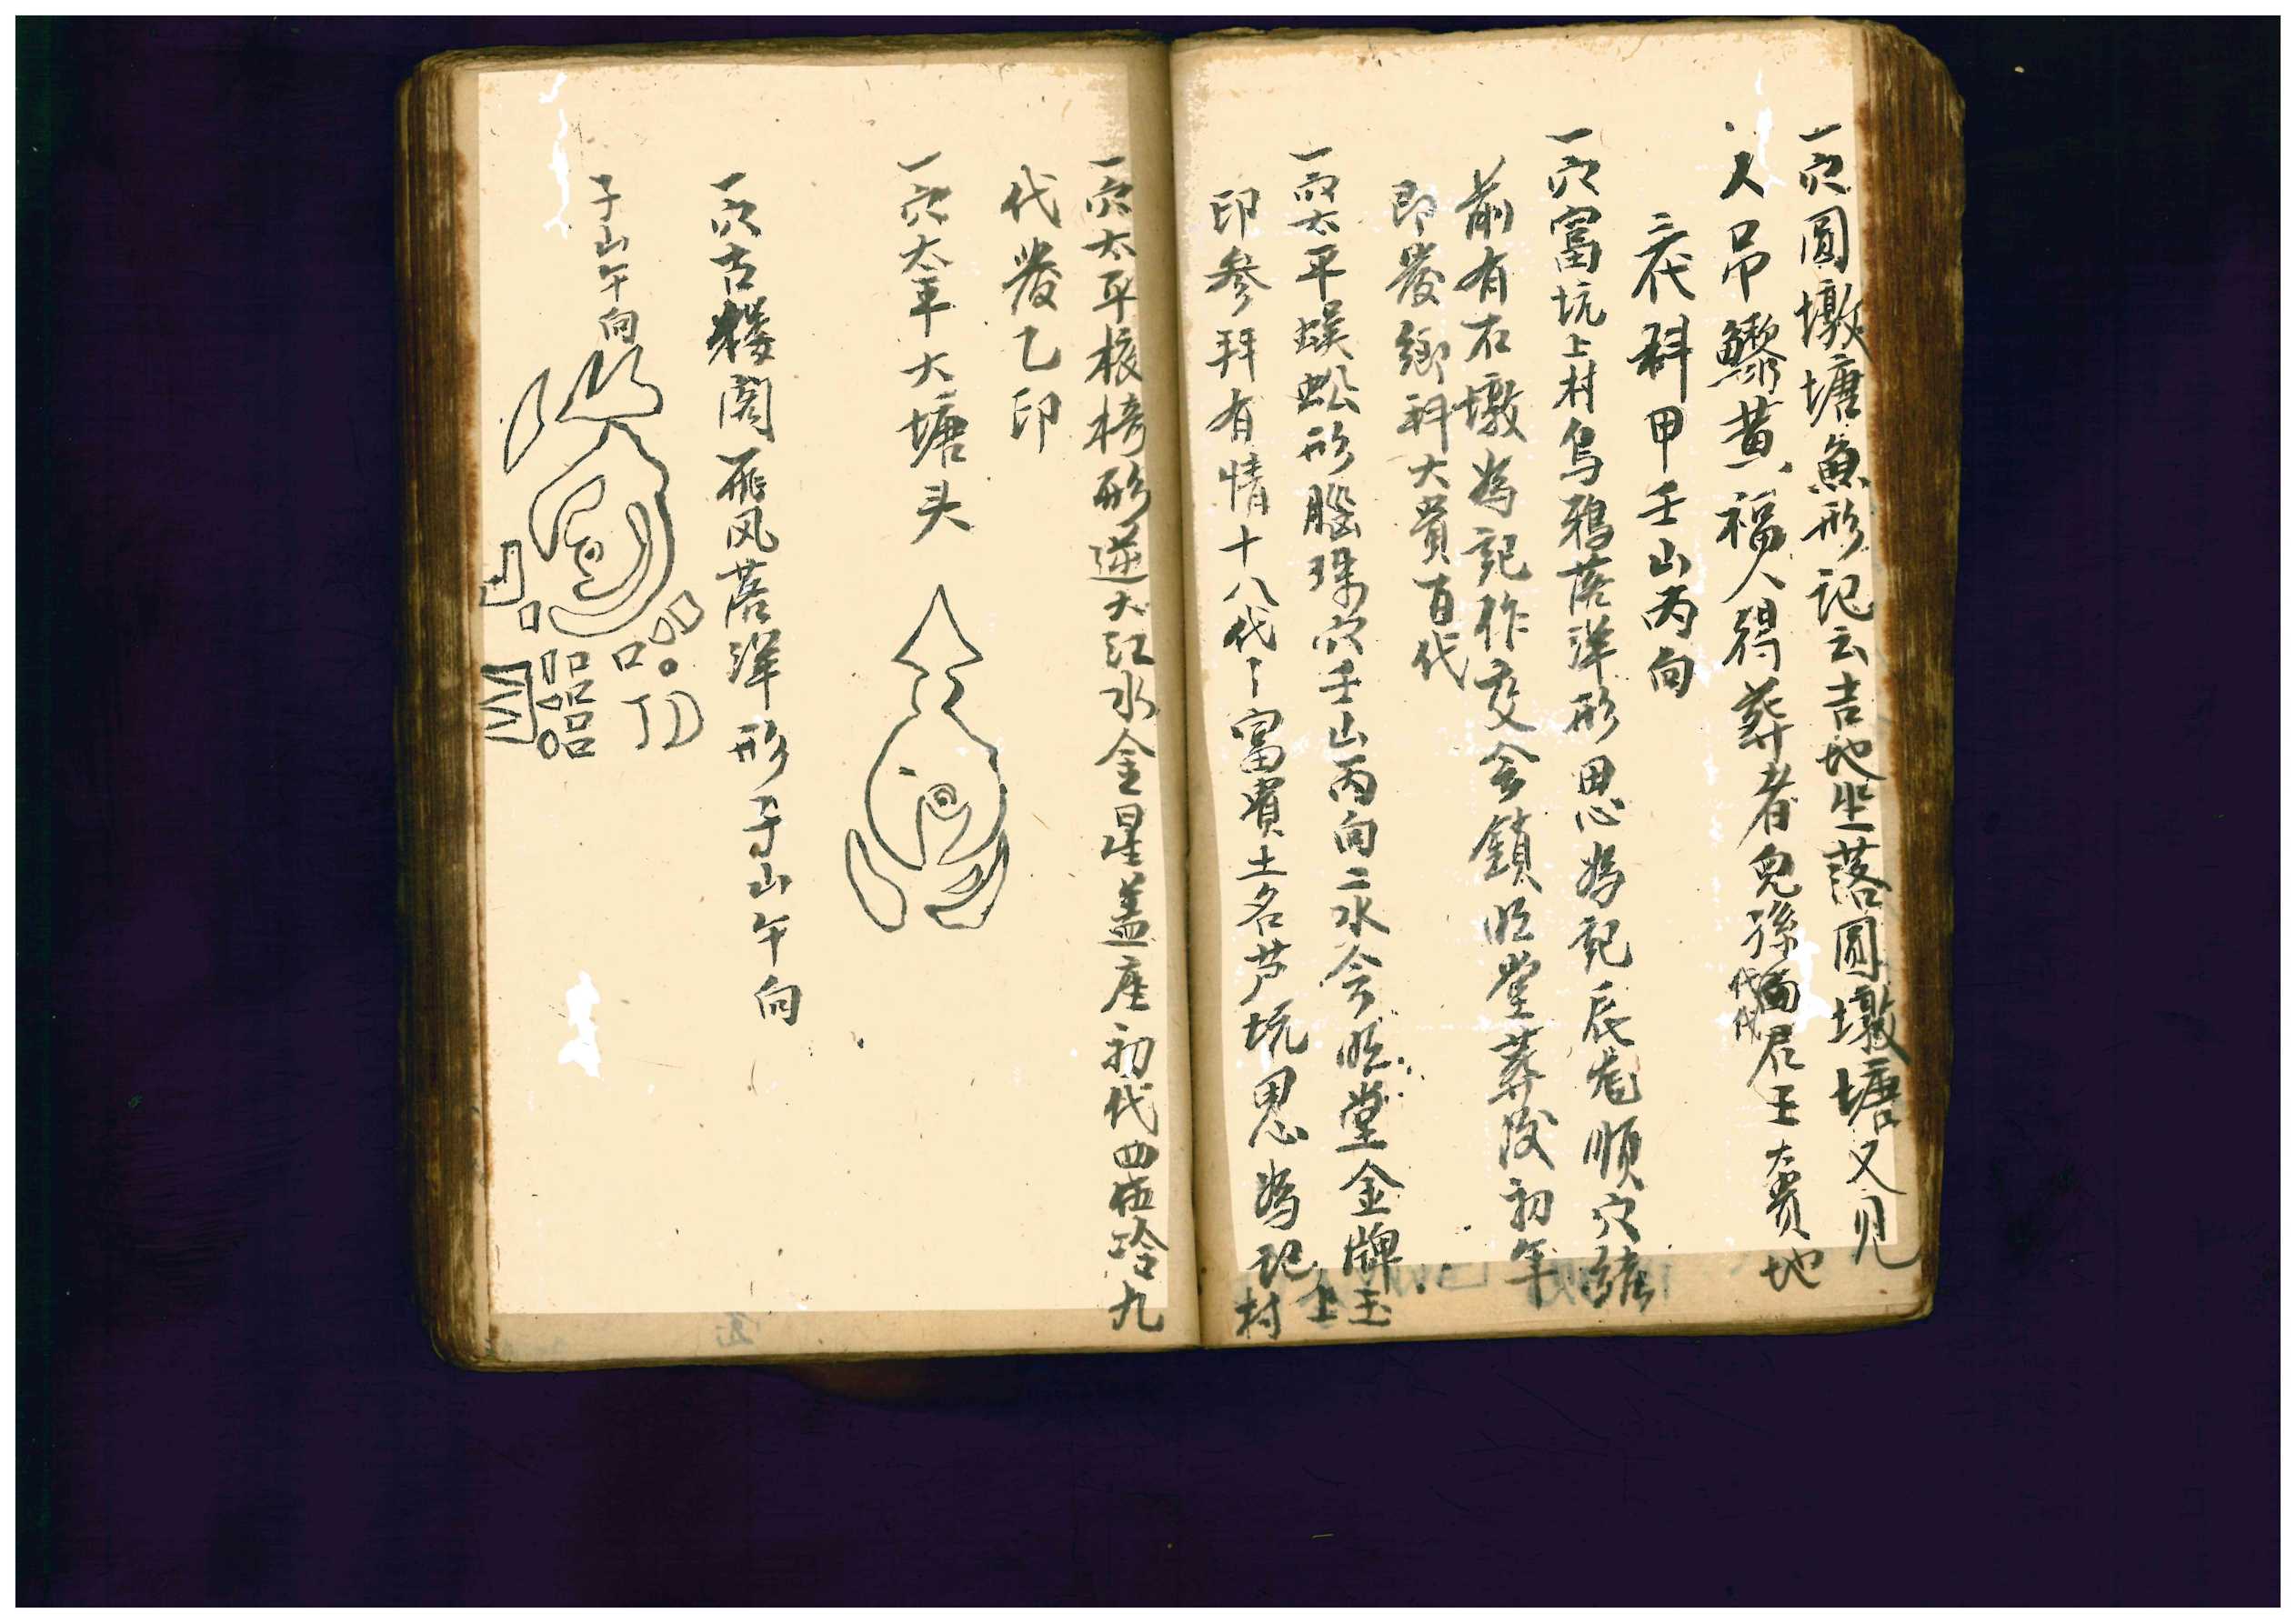 一穴圓墩塘魚形記云吉地坐落圓墩塘又見
人吊鰲黄福人得葬者兒孫代代面君王大貴地
三代科甲壬山丙向
一穴富坑上村烏鴉落洋形思為記辰龙順穴
前有石墩為記作交会鎖明堂葬後初年
即發鄉科大貴百代
一穴太平蜈蚣形腦珠穴壬山丙向二水会明堂金牌玉
印參拜有情十八代富貴土名芦坑思為記上村
一穴太平椅形逆大江水金星蓋座初代四九
代發乙印
一穴太平大塘头
一穴古楼閣风落洋形子山午向
子山午向